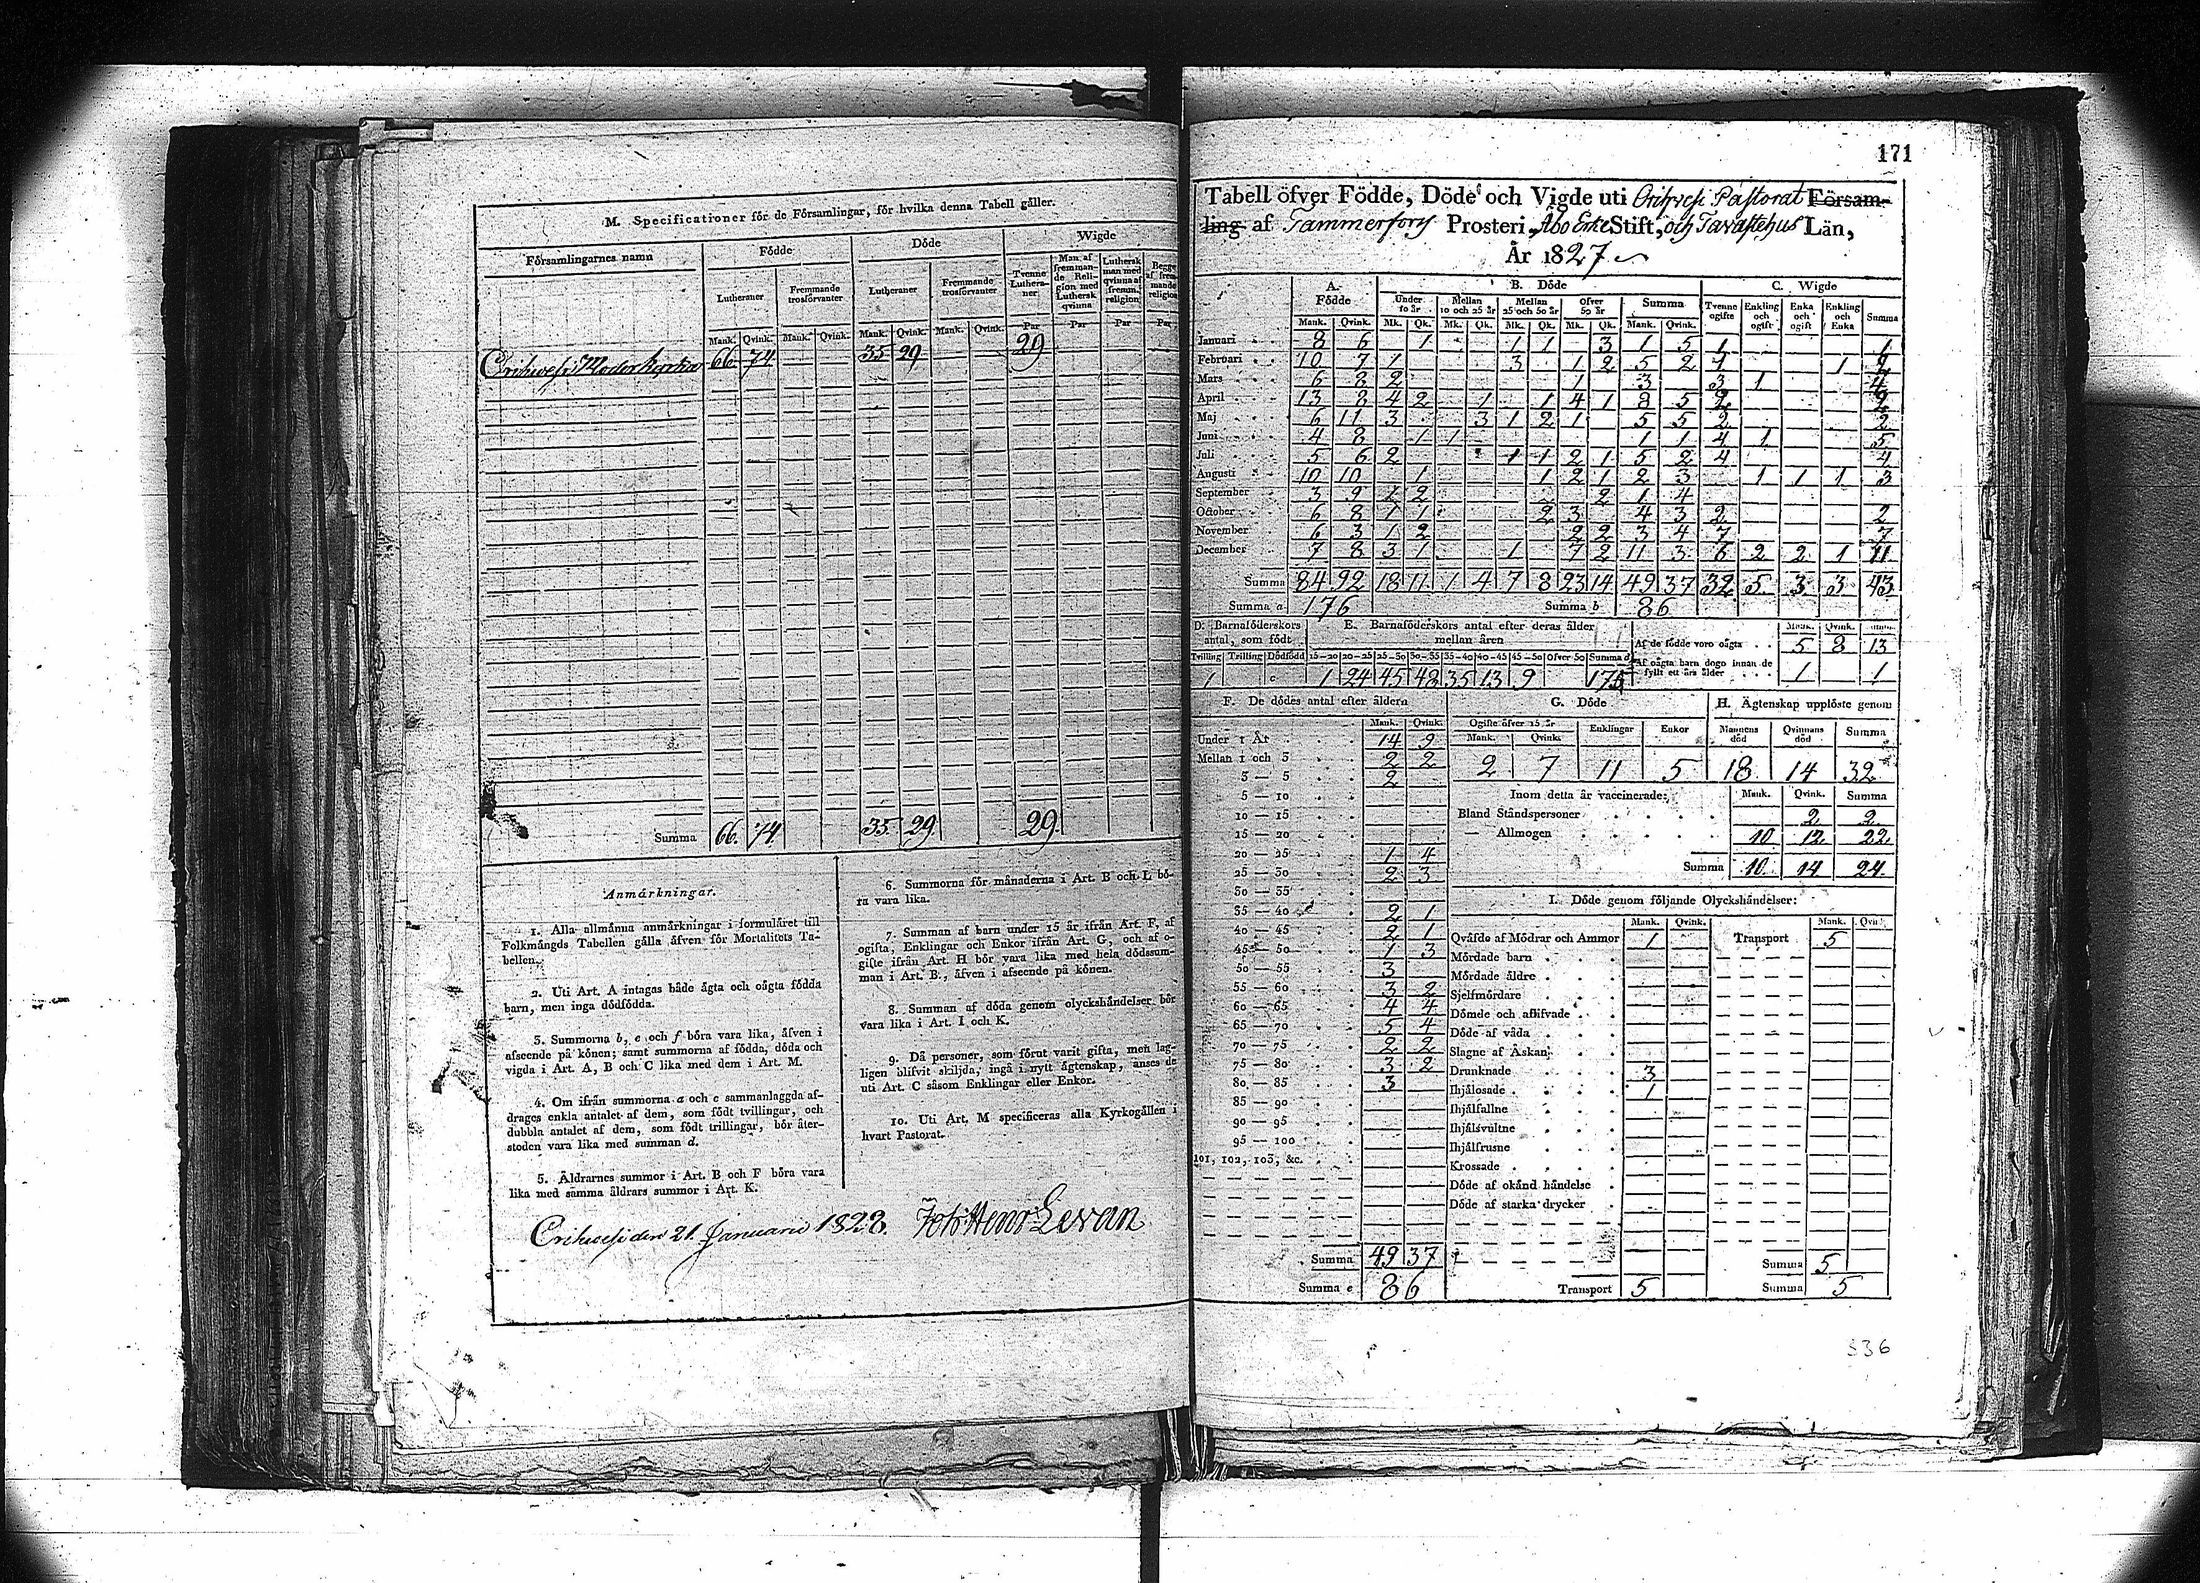 M. Specificationer för de Församlingar, för hvilka denna Tabell gäller.
Församlingarnes namn | Födde | Döde | Wigde
Lutheraner | Fremmande trosförvanter | Lutheraner | Fremmande trosförvanter | Tvenne Lutheraner | Man af fremmande Religion med Luthersk qvinna | Luthersk man med qvinna af fremm. religion | Begge af fremmande religion
Mank. Qvink. Mank. Qvink. Mank. Qvink. Mank. Qvink. Par Par Par Par
Orihwesi Moderkyrka 66. 74. 35 29 29
Summa 66. 74. 35 29 29.
Anmärkningar.
1. Alla allmänna anmärkningar i formuläret till
Folkmängds Tabellen gälla äfven för Mortalitets Ta-
bellen.
2. Uti Art. A intagas både ägta och oägta födda
barn, men inga dödfödda.
3. Summorna b, e och f böra vara lika, äfven i
afseende på könen; samt summorna af födda, döda och
vigda i Art. A, B och C lika med dem i Art. M.
4. Om ifrån summorna a och c sammanlaggda af-
drages enkla antalet af dem, som födt tvillingar, och
dubbla antalet af dem, som födt trillingar, bör åter-
stoden vara lika med summan d.
5. Åldrarnes summor i Art. B och F böra vara
lika med samma åldrars summor i Art. K.
6. Summorna för månaderna i Art. B och L bö-
ra vara lika.
7. Summan af barn under 15 år ifrån Art. F, af
ogifta, Enklingar och Enkor ifrån Art. G, och af o-
gifte ifrån Art. H bör vara lika med hela dödssum-
man i Art. B., äfven i afseende på könen.
8. Summan af döda genom olyckshändelser bör
vara lika i Art. I och K.
9. Då personer, som förut varit gifta, men lag-
ligen blifvit skiljda, ingå i nytt ägtenskap, anses de
uti Art. C såsom Enklingar eller Enkor.
10. Uti Art. M specificeras alla Kyrkogällen i
hvart Pastorat.
Orihwesi den 21. Januarii 1828. Joh: Henr Levan
171
Tabell öfver Födde, Döde och Vigde uti Orihvesi Pastorat Församling
af Tammerfors Prosteri, Åbo Erke Stift, och Tavastehus Län,
År 1827
A. Födde | B. Döde | C. Wigde
Under 10 år | Mellan 10 och 25 år | Mellan 25 och 50 år | Öfver 50 år | Summa | Tvenne ogifte | Enkling och ogift | Enka och ogift | Enkling och Enka | Summa
Mank. Qvink. Mk. Qk. Mk. Qk. Mk. Qk. Mk. Qk. Mank. Qvink.
Januari 8 6 1 1 1 3 1 5 1 1
Februari 10 7 1 3 1 2 5 2 1 1 2
Mars 6 8 2 1 3 3 1 4
April 13 8 4 2 1 1 4 1 8 5 2 2
Maj 6 11 3 3 1 2 1 5 5 2 2
Juni 4 8 1 1 1 1 4 1 5
Juli 5 6 2 1 1 2 1 5 2 4 4
Augusti 10 10 1 1 2 1 2 3 1 1 1 3
September 3 9 1 2 2 1 4
October 6 8 1 1 2 3 4 3 2 2
November 6 3 1 2 2 2 3 4 7 7
December 7 8 3 1 1 7 2 11 3 6 2 2 1 11
Summa 84 92 18 11 1 4 7 8 23 14 49 37 32 5 3 3 43
Summa a 176 Summa b 86
D. Barnaföderskors antal, som födt | E. Barnaföderskors antal efter deras ålder mellan åren
Tvilling Trilling Dödfödd 15-20 20-25 25-30 30-35 35-40 40-45 45-50 Öfver 50 Summa d
1 c 1 24 45 48 35 13 9 175
Mank. Qvink.
Af de födde voro oägta 5 8 13
Af oägta barn dogo innan de fyllt ett års ålder 1 1
F. De dödes antal efter åldern
Mank. Qvink.
Under 1 År 14 9
Mellan 1 och 3 2 2
3 — 5 2
5 — 10
10 — 15
15 — 20
20 — 25 1 4
25 — 30 2 3
30 — 35
35 — 40 2 1
40 — 45 2 1
45 — 50 1 3
50 — 55 3
55 — 60 3 2
60 — 65 4 4
65 — 70 5 4
70 — 75 2 2
75 — 80 3 2
80 — 85 3
85 — 90
90 — 95
95 — 100
101, 102, 103, &c.
Summa 49 37
Summa e 86
G. Döde
Ogifte öfver 15 år | Enklingar | Enkor
Mank. Qvink.
2 7 11 5
H. Ägtenskap upplöste genom
Mannens död | Qvinnans död | Summa
18 14 32
Inom detta år vaccinerade: Mank. Qvink. Summa
Bland Ståndspersoner 2 2
— Allmogen 10 12 22
Summa 10 14 24
I. Döde genom följande Olyckshändelser:
Mank. Qvink. Mank.
Qväfde af Mödrar och Ammor 1 Transport 5
Mördade barn
Mördade äldre
Sjelfmördare
Dömde och aflifvade
Döde af våda
Slagne af Åskan
Drunknade 3
Ihjälosade 1
Ihjälfallne
Ihjälsvultne
Ihjälfrusne
Krossade
Döde af okänd händelse
Döde af starka drycker
Summa 5
Transport 5 Summa 5
336